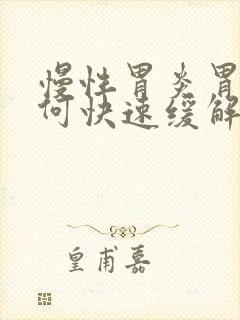 慢性胃炎胃
何快速缓解
皇甫嘉